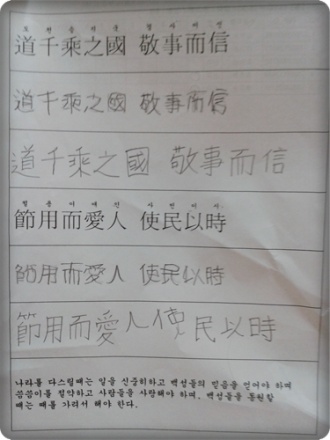 도 천 승 지 국 경 사 이 신
道千乘之國 敬事而信
道千乘之國 敬事而信
道千乘之國 敬事而信
절 용 이 애 인 사 민 이 시
節用而愛人 使民以時
節用而愛人 使民以時
節用而愛人 使民以時
나라를 다스릴때는 일을 신중히하고 백성들의 믿음을 얻어야 하며
씀씀이를 절약하고 사람들을 사랑해야 하며, 백성들을 동원할
때는 때를 가려서 해야 한다.